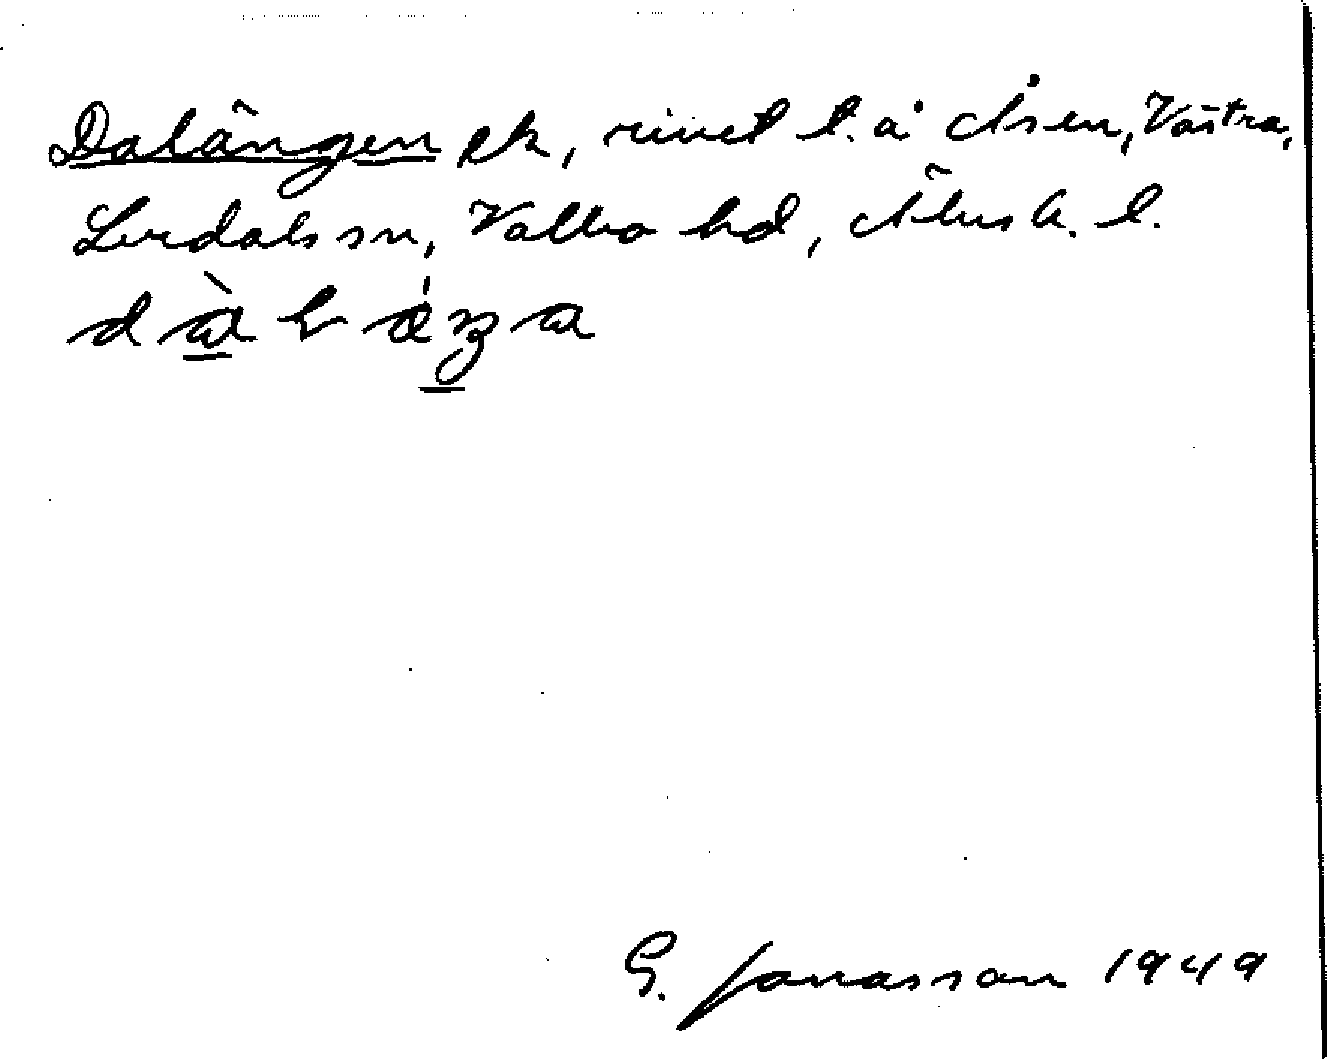 Dalängen pk, rivet t. å Åsen, Västra,
Lerdals sn, Valbo hd, Älvsb. l.
G. Jonasson 1949